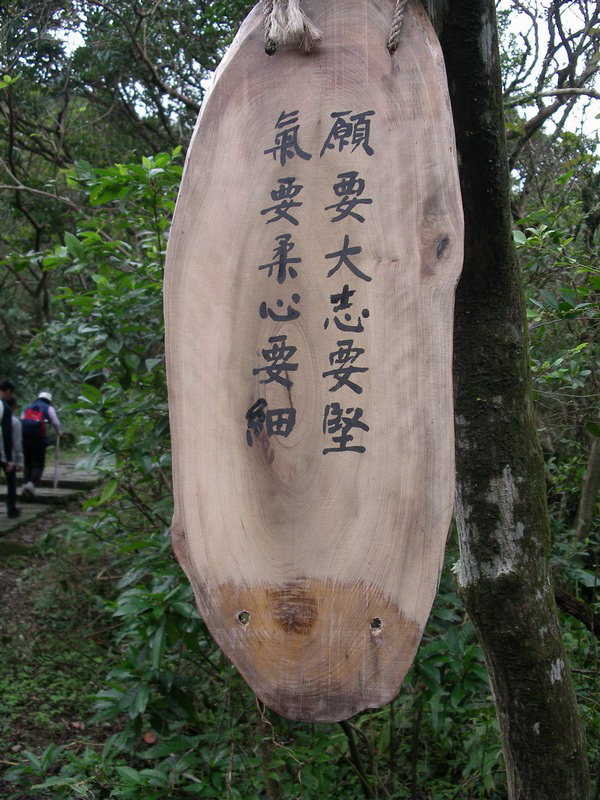 願要大志要堅
氣要柔心要細